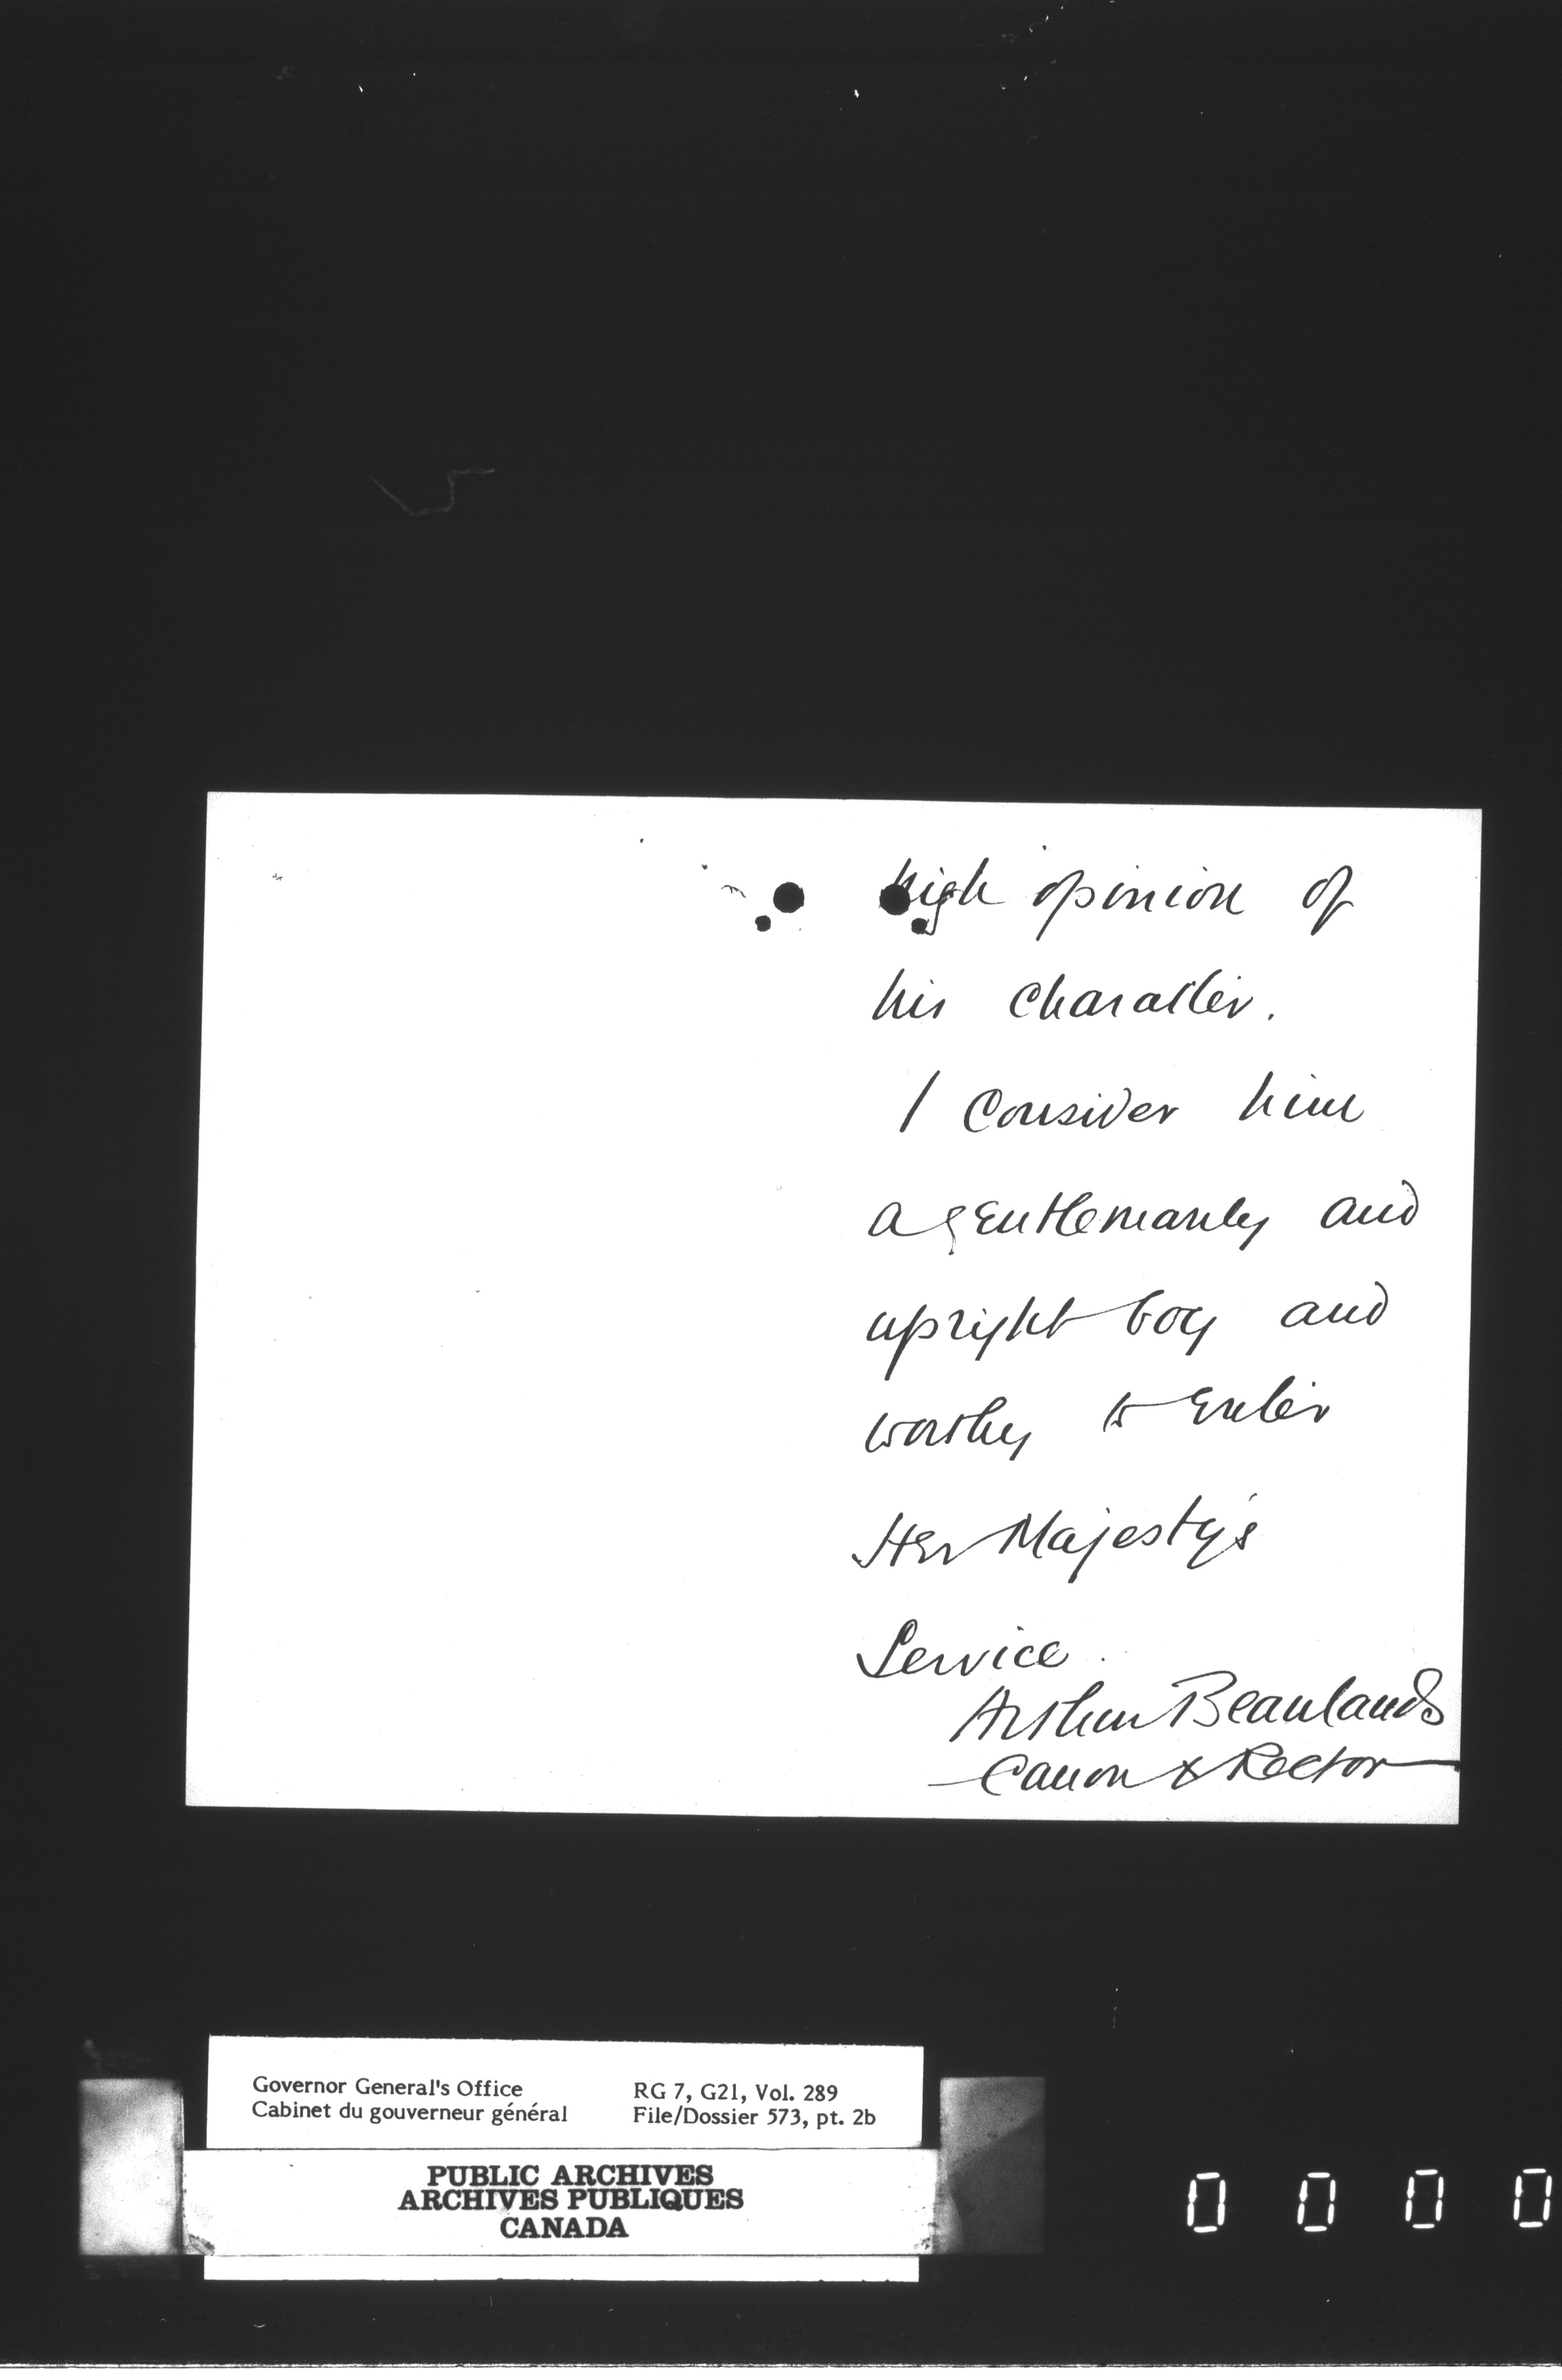 high opinion of
his character.
I consider him
a gentlemanly and
upright boy and
worthy to enter
Her Majesty's
Service.
Arthur Beanlands
Canon & Rector
Governor General's Office
Cabinet du gouverneur général
RG 7, G21, Vol. 289
File/Dossier 573, pt. 2b
PUBLIC ARCHIVES
ARCHIVES PUBLIQUES
CANADA
0 0 0 0